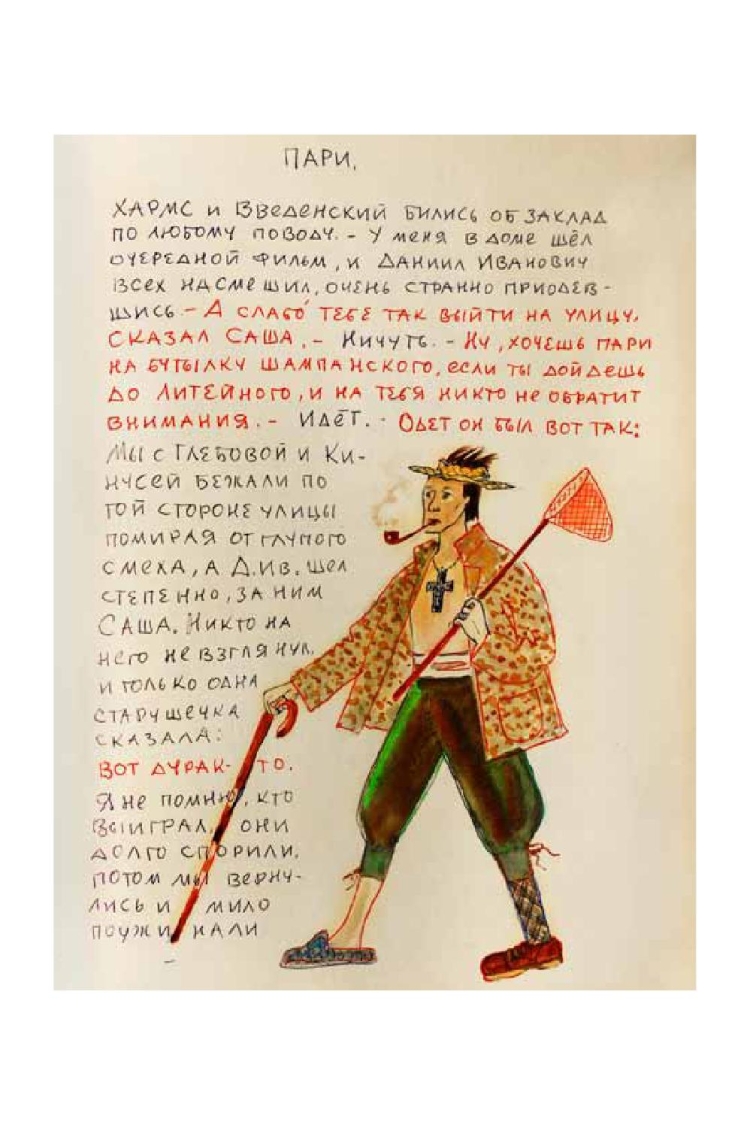 ПАРИ.
ХАРМС И ВВЕДЕНСКИЙ БИЛИСЬ ОБ ЗАКЛАД
ПО ЛЮБОМУ ПОВОДУ. - У МЕНЯ В ДОМЕ ШЁЛ
ОЧЕРЕДНОЙ ФИЛЬМ, И ДАНИИЛ ИВАНОВИЧ
ВСЕХ НАСМЕШИЛ, ОЧЕНЬ СТРАННО ПРИОДЕВ-
ШИСЬ. - А СЛАБО́ ТЕБЕ ТАК ВЫЙТИ НА УЛИЦУ,
СКАЗАЛ САША. - НИЧУТЬ. - НУ, ХОЧЕШЬ ПАРИ
НА БУТЫЛКУ ШАМПАНСКОГО, ЕСЛИ ТЫ ДОЙДЕШЬ
ДО ЛИТЕЙНОГО, И НА ТЕБЯ НИКТО НЕ ОБРАТИТ
ВНИМАНИЯ. - ИДЁТ. - ОДЕТ ОН БЫЛ ВОТ ТАК:
МЫ С ГЛЕБОВОЙ И КИ-
НУСЕЙ БЕЖАЛИ ПО
ТОЙ СТОРОНЕ УЛИЦЫ
ПОМИРАЯ ОТ ГЛУПОГО
СМЕХА, А Д.ИВ. ШЕЛ
СТЕПЕННО, ЗА НИМ
САША. НИКТО НА
НЕГО НЕ ВЗГЛЯНУЛ,
И ТОЛЬКО ОДНА
СТАРУШЕЧКА
СКАЗАЛА:
ВОТ ДУРАК-ТО.
Я НЕ ПОМНЮ, КТО
ВЫИГРАЛ, ОНИ
ДОЛГО СПОРИЛИ,
ПОТОМ МЫ ВЕРНУ-
ЛИСЬ И МИЛО
ПОУЖИНАЛИ